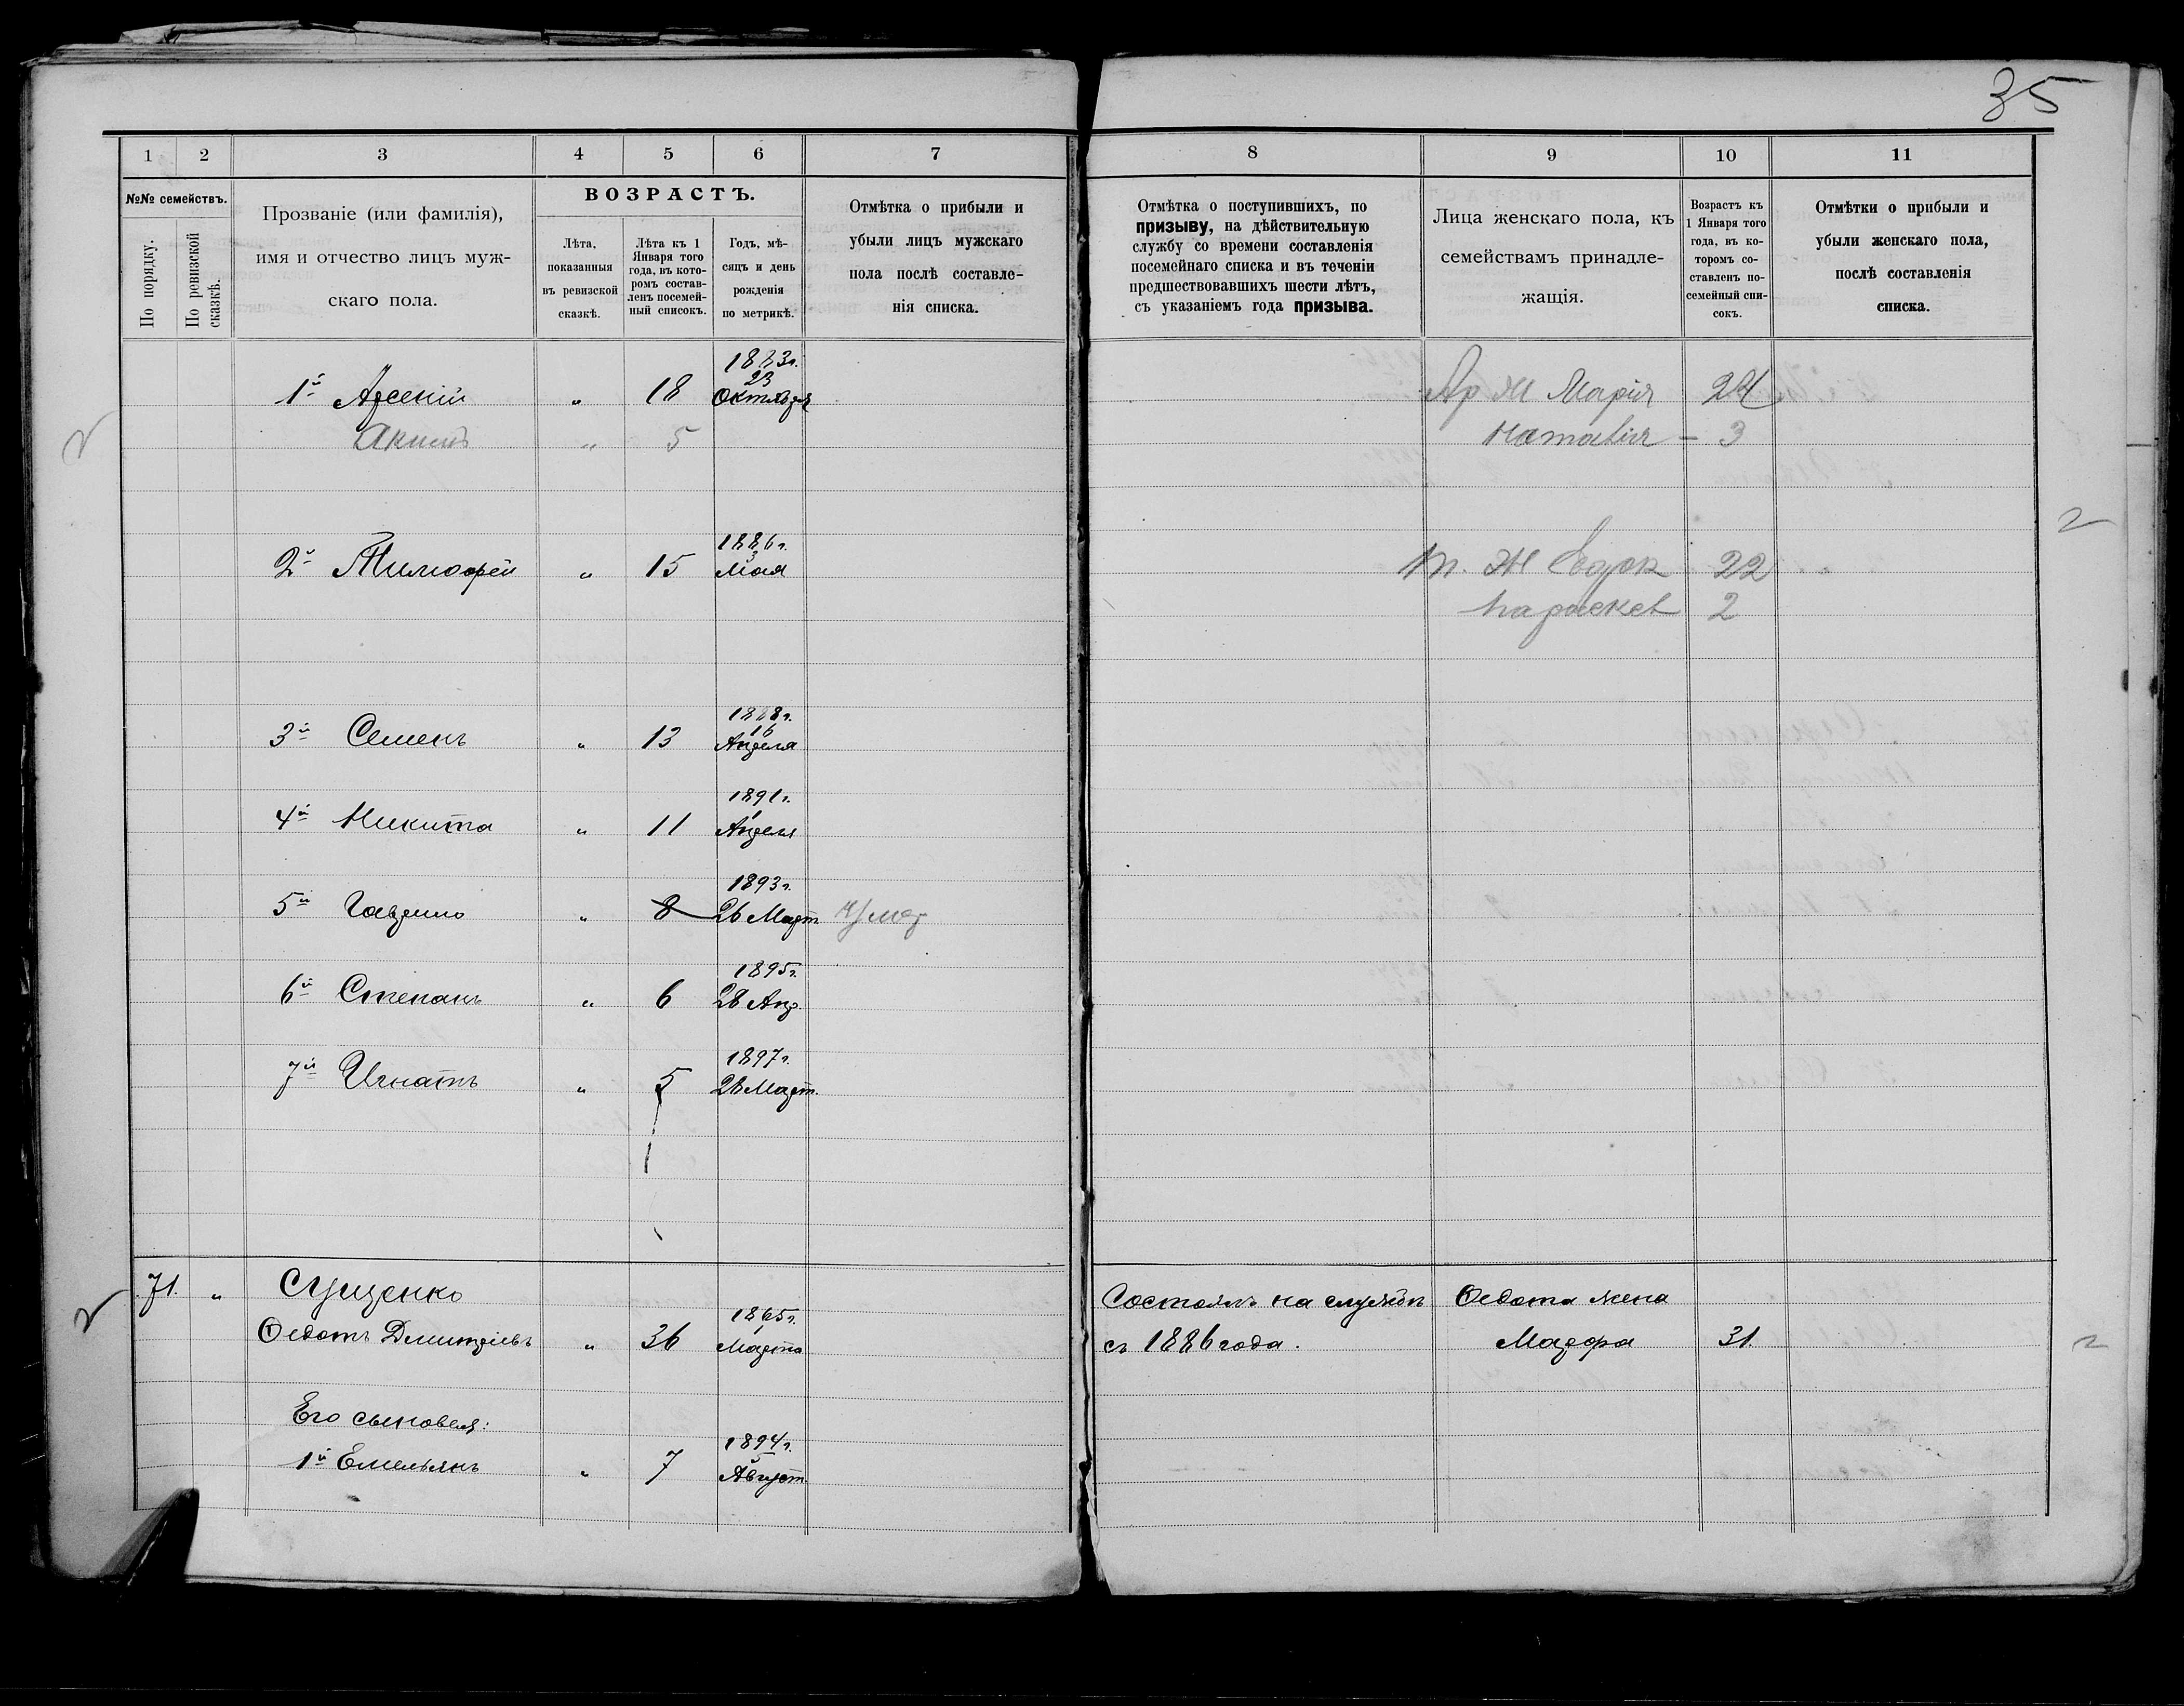 35
1 2 3 4 5 6 7 8 9 10 11
№№ семействъ.
По порядку.
По ревизской сказкѣ.
Прозваніе (или фамилія),
имя и отчество лицъ муж-
скаго пола.
ВОЗРАСТЪ.
Лѣта,
показанныя
въ ревизской
сказкѣ.
Лѣта къ 1
Января того
года, въ кото-
ромъ состав-
ленъ посемей-
ный списокъ.
Годъ, мѣ-
сяцъ и день
рожденія
по метрикѣ.
Отмѣтка о прибыли и
убыли лицъ мужскаго
пола послѣ составле-
нія списка.
Отмѣтка о поступившихъ, по
призыву, на дѣйствительную
службу со времени составленія
посемейнаго списка и въ теченіи
предшествовавшихъ шести лѣтъ,
съ указаніемъ года призыва.
Лица женскаго пола, къ
семействамъ принадле-
жащія.
Возрастъ къ
1 Января того
года, въ ко-
торомъ со-
ставленъ по-
семейный спи-
сокъ.
Отмѣтки о прибыли и
убыли женскаго пола,
послѣ составленія
списка.
1883г.
23
1й Арсеній " 18 Октября Ар Ж Марія 24
Акимъ " 5 Наталія - 3
1886г.
3
2й Тимофей " 15 Мая Т. Ж Евдок 22
Параскев 2
1888г.
16
3й Семенъ " 13 Апреля
1891г.
1
4й Никита " 11 Апреля
1893г.
5й Гаврило " 8 26 Март. Умер
1895г.
6й Степанъ " 6 28 Апр.
1897г.
7й Игнатъ " 5 28 Март.
71. " Сущенко Состоялъ на службѣ Ѳедота жена
1865г.
1
Ѳедотъ Дмитріевъ " 36 Марта съ 1886 года. Марфа 31.
Его сыновья:
1894г.
5
1й Емельянъ " 7 Август.